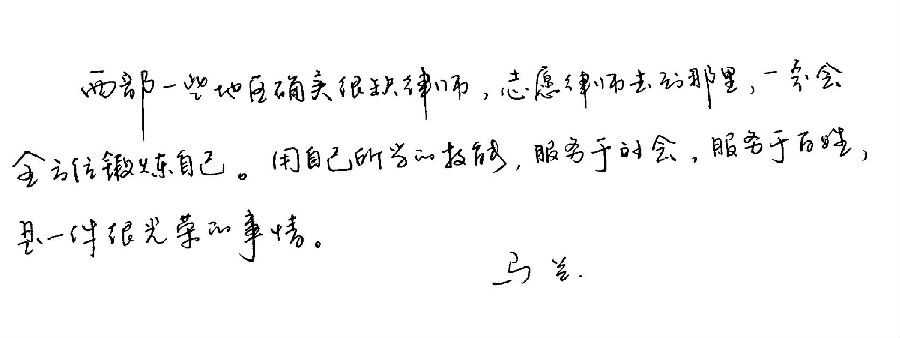 西部一些地区确实很缺律师，志愿律师去到那里，一定会
全方位锻炼自己。用自己所学的技能，服务于社会，服务于百姓，
是一件很光荣的事情。
马兰.